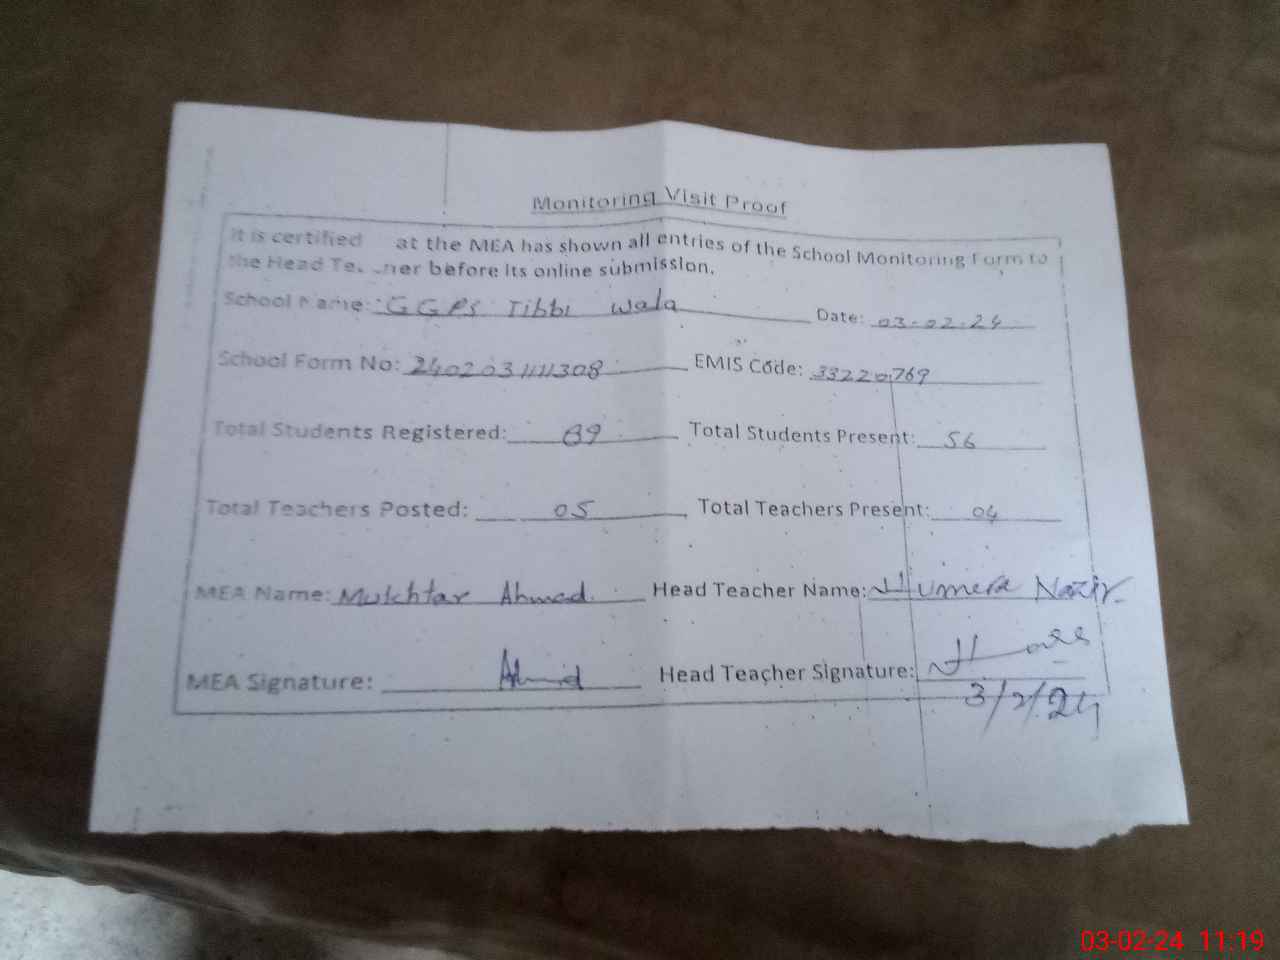 Monitoring Visit Proof
It is certified at the MEA has shown all entries of the School Monitoring Form to
the Head Te ner before its online submission.
School Name: GGPS Tibbi Wala Date: 03-02-24
School Form No: 2402031111308 EMIS Code: 33220769
Total Students Registered: 89 Total Students Present: 56
Total Teachers Posted: 05 Total Teachers Present: 04
MEA Name: Mukhtar Ahmad. Head Teacher Name: Humera Nazir
MEA Signature: Ahmad Head Teacher Signature:
3/2/24
03-02-24 11:19